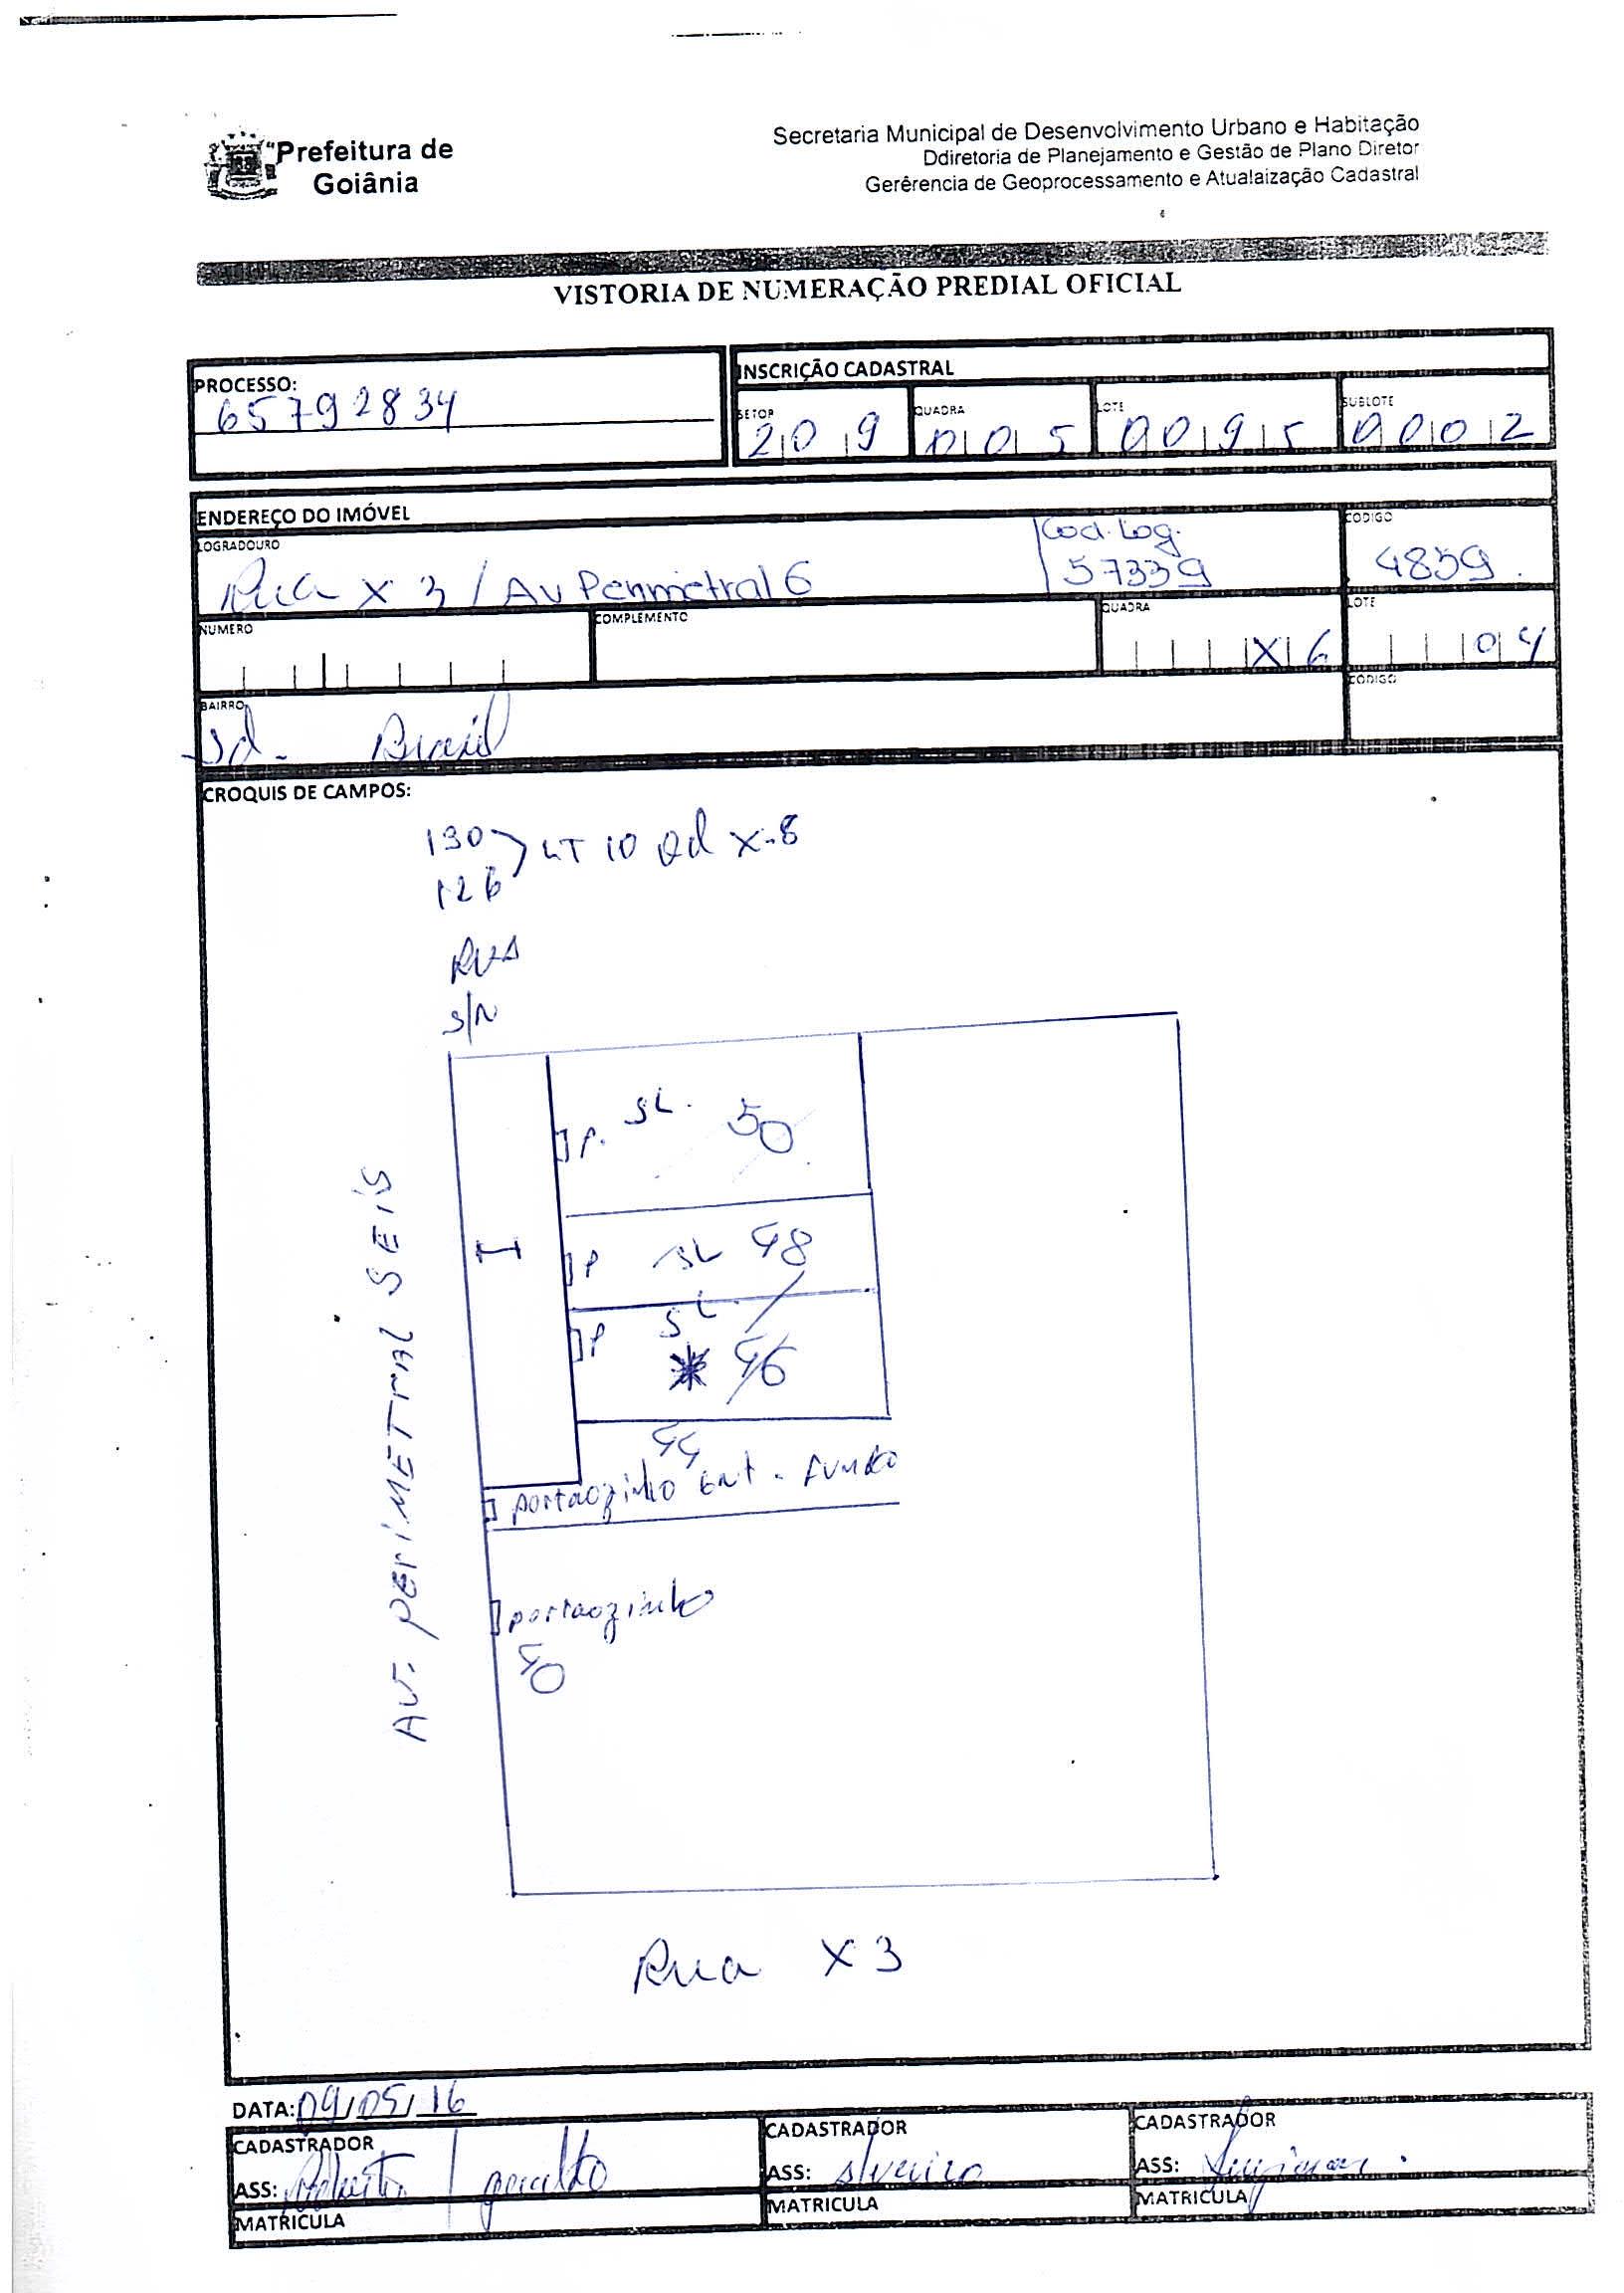 Prefeitura de
Goiânia
Secretaria Municipal de Desenvolvimento Urbano e Habitação
Ddiretoria de Planejamento e Gestão de Plano Diretor
Gerêrencia de Geoprocessamento e Atualaização Cadastral
VISTORIA DE NUMERAÇÃO PREDIAL OFICIAL
PROCESSO:
65792834
INSCRIÇÃO CADASTRAL
SETOR QUADRA LOTE SUBLOTE
209 005 0095 0002
ENDEREÇO DO IMÓVEL
LOGRADOURO
Rua X 3 / Av Perimetral 6
Cod. Log.
57339
CODIGO
4839
NUMERO
COMPLEMENTO
QUADRA
X6
LOTE
04
BAIRRO
Jd. Brasil
CODIGO
CROQUIS DE CAMPOS:
130
126
LT 10 Qd X-8
RUA
S/N
AV. PERIMETRAL SEIS
P. SL. 50
I
P SL 48
P SL.
* 46
44
portaozinho Ent. FUNDO
portaozinho
40
Rua X3
DATA: 09/05/16
CADASTRADOR
ASS: Roberto / geraldo
MATRICULA
CADASTRADOR
ASS:
MATRICULA
CADASTRADOR
ASS:
MATRICULA